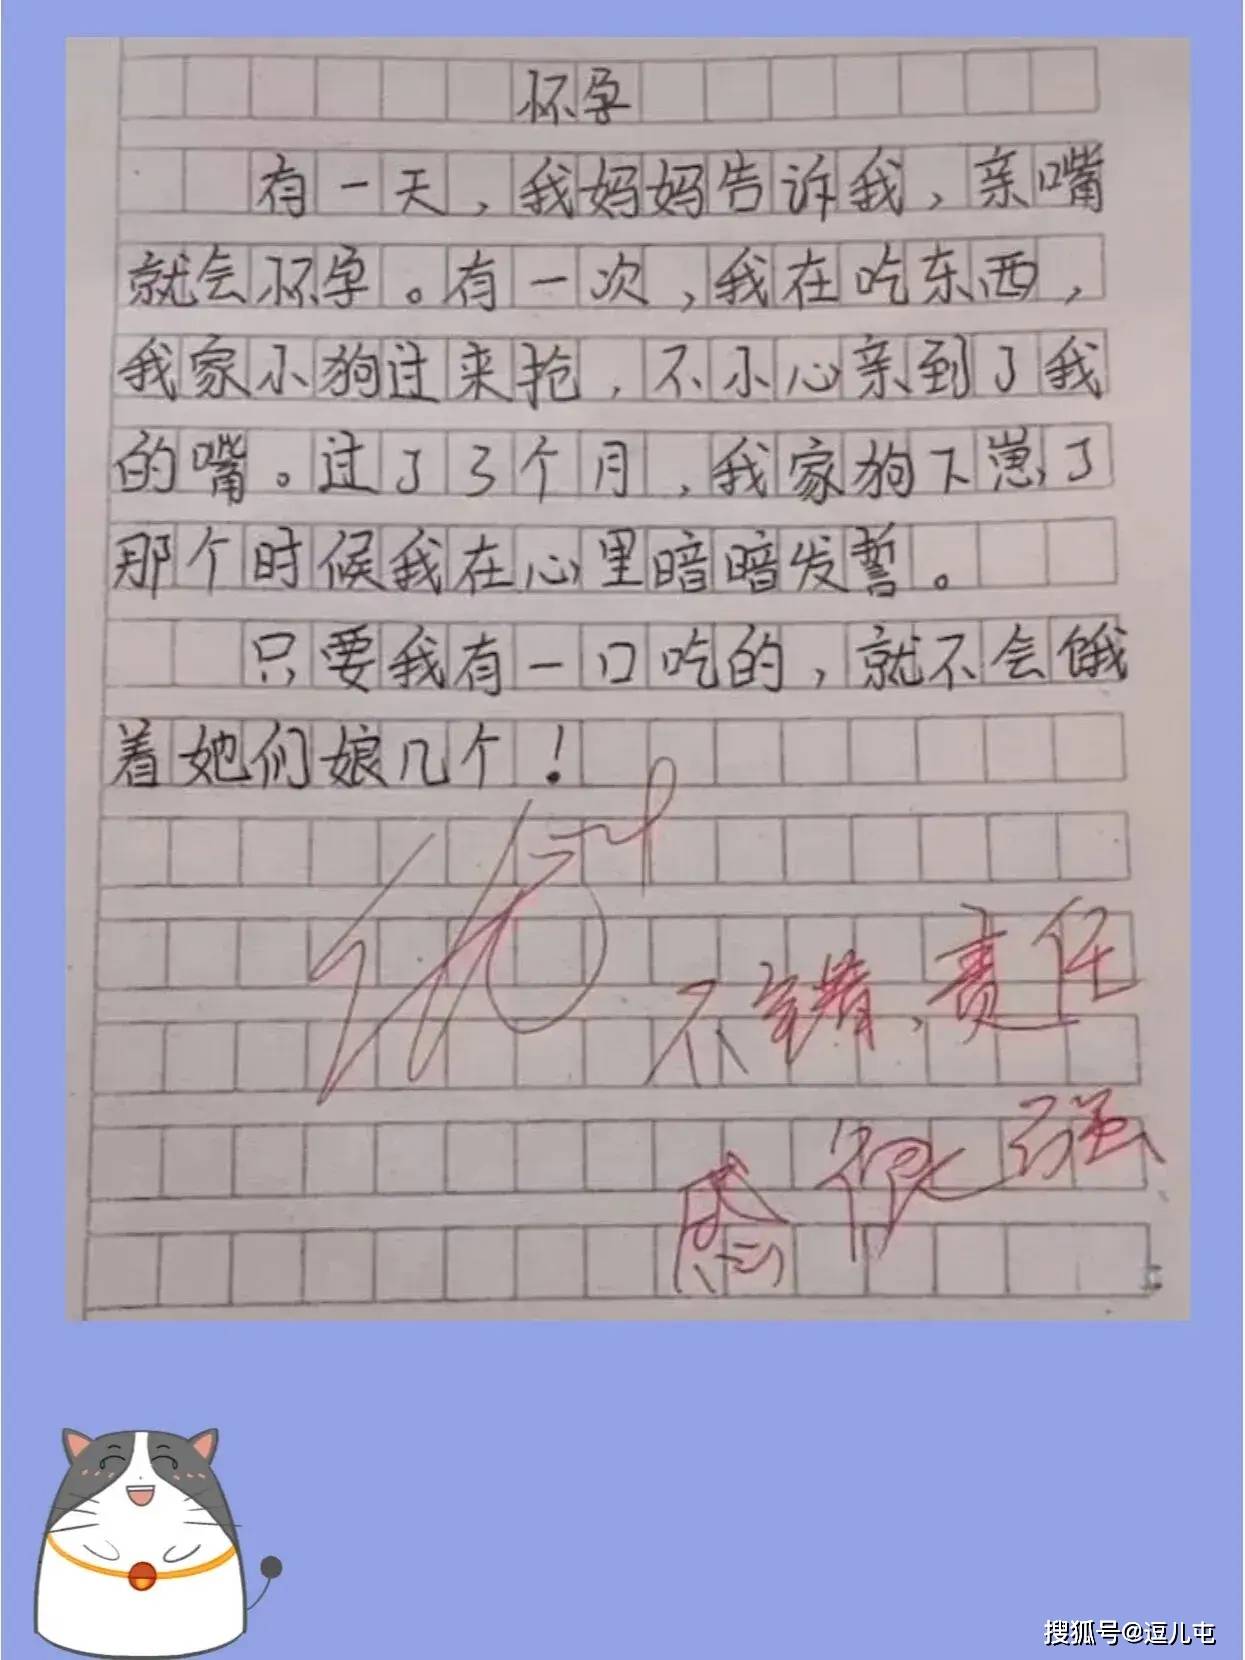 怀孕
有一天，我妈妈告诉我，亲嘴
就会怀孕。有一次，我在吃东西，
我家小狗过来抢，不小心亲到了我
的嘴。过了3个月，我家狗下崽了
那个时候我在心里暗暗发誓。
只要我有一口吃的，就不会饿
着她们娘几个！
不错，责任
感很强
搜狐号@逗儿屯